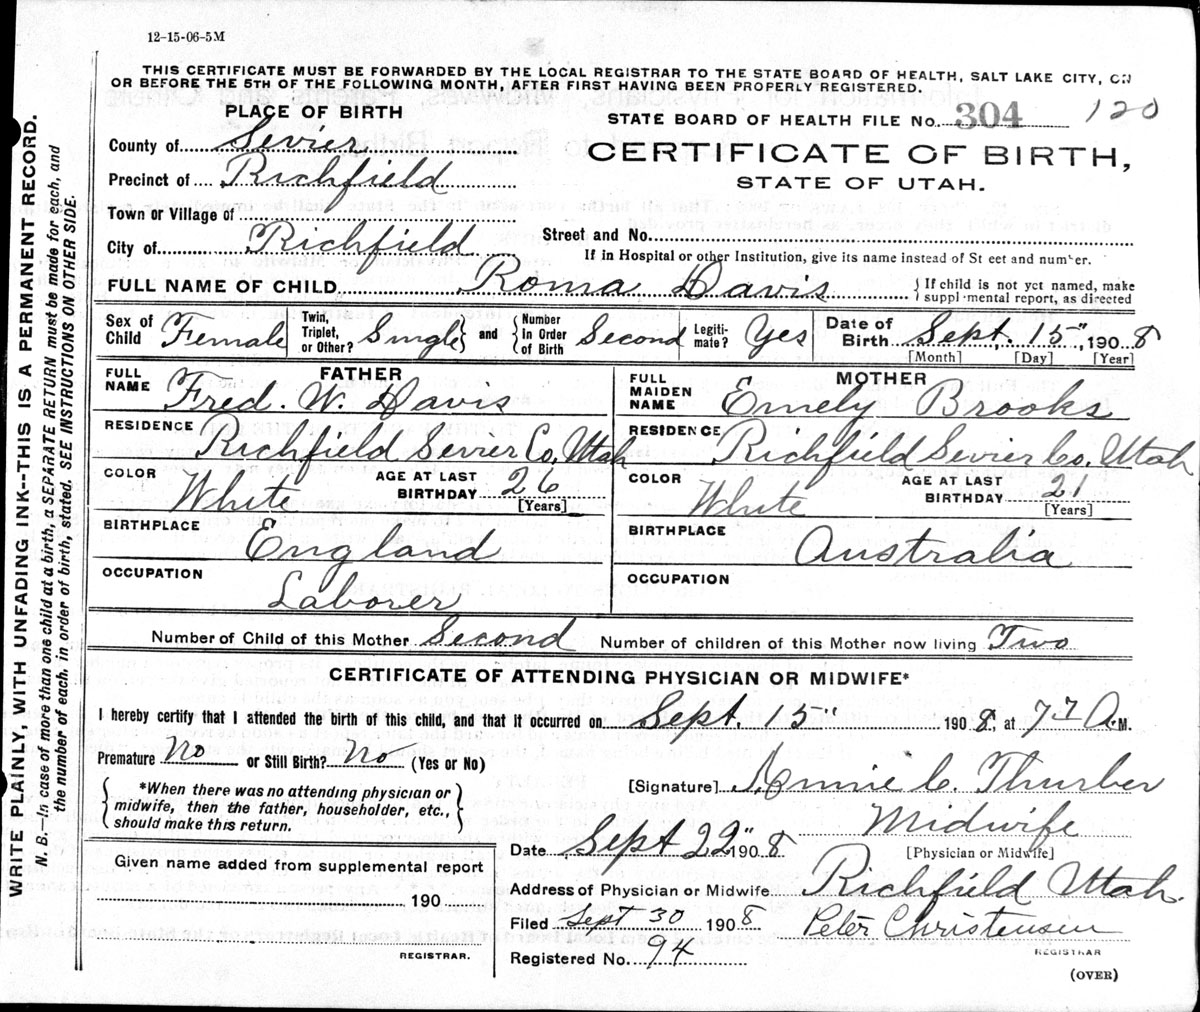 12-15-06-5M
THIS CERTIFICATE MUST BE FORWARDED BY THE LOCAL REGISTRAR TO THE STATE BOARD OF HEALTH, SALT LAKE CITY, ON
OR BEFORE THE 5TH OF THE FOLLOWING MONTH, AFTER FIRST HAVING BEEN PROPERLY REGISTERED.
PLACE OF BIRTH
STATE BOARD OF HEALTH FILE No. 304 120
County of Sevier
CERTIFICATE OF BIRTH,
STATE OF UTAH.
Precinct of Richfield
Town or Village of
City of Richfield
Street and No.
If in Hospital or other Institution, give its name instead of St eet and number.
FULL NAME OF CHILD Roma Davis
{ If child is not yet named, make
suppl·mental report, as directed
Sex of Child Female
Twin, Triplet, or Other? Single } and { Number In Order of Birth Second
Legiti-mate? Yes
Date of Birth Sept. 15", 1908
[Month] [Day] [Year]
FATHER
FULL NAME Fred. W. Davis
RESIDENCE Richfield Sevier Co. Utah
COLOR White
AGE AT LAST BIRTHDAY 26 [Years]
BIRTHPLACE England
OCCUPATION Laborer
MOTHER
FULL MAIDEN NAME Emely Brooks
RESIDENCE Richfield Sevier Co. Utah
COLOR White
AGE AT LAST BIRTHDAY 21 [Years]
BIRTHPLACE Australia
OCCUPATION
Number of Child of this Mother Second Number of children of this Mother now living Two
CERTIFICATE OF ATTENDING PHYSICIAN OR MIDWIFE*
I hereby certify that I attended the birth of this child, and that it occurred on Sept. 15" 1908 at 7 A.M.
Premature No or Still Birth? No (Yes or No)
{ *When there was no attending physician or
midwife, then the father, householder, etc.,
should make this return. }
[Signature] Annie C. Thurber
Midwife
[Physician or Midwife]
Date Sept 22" 1908
Address of Physician or Midwife Richfield Utah.
Filed Sept 30 1908 Peter Christensen
REGISTRAR
Registered No. 94
(OVER)
Given name added from supplemental report
190
REGISTRAR.
WRITE PLAINLY, WITH UNFADING INK--THIS IS A PERMANENT RECORD.
N. B.--In case of more than one child at a birth, a SEPARATE RETURN must be made for each, and
the number of each, in order of birth, stated. SEE INSTRUCTIONS ON OTHER SIDE.